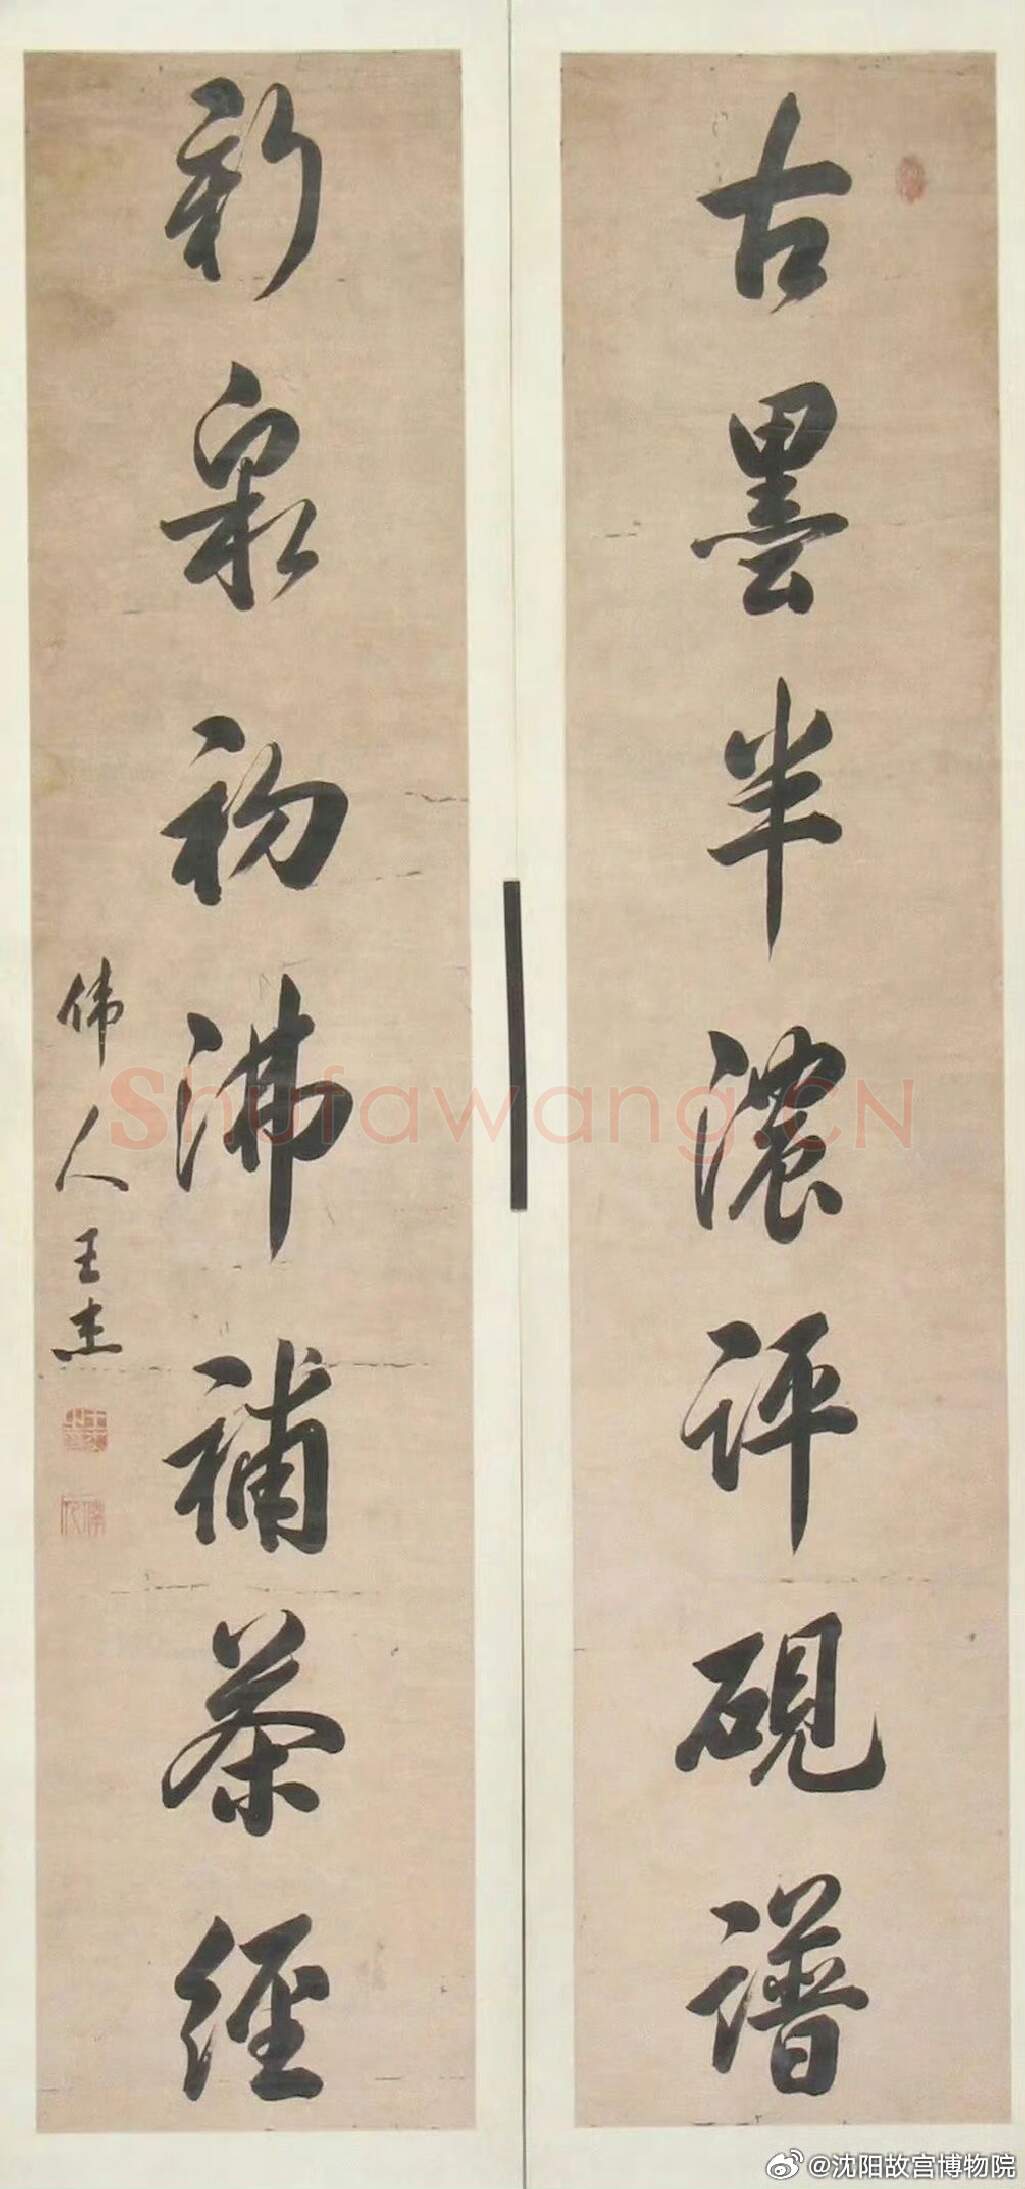 古墨半濃評硯譜
新泉初沸補茶經
偉人王杰
Shufawang.CN
@沈阳故宫博物院